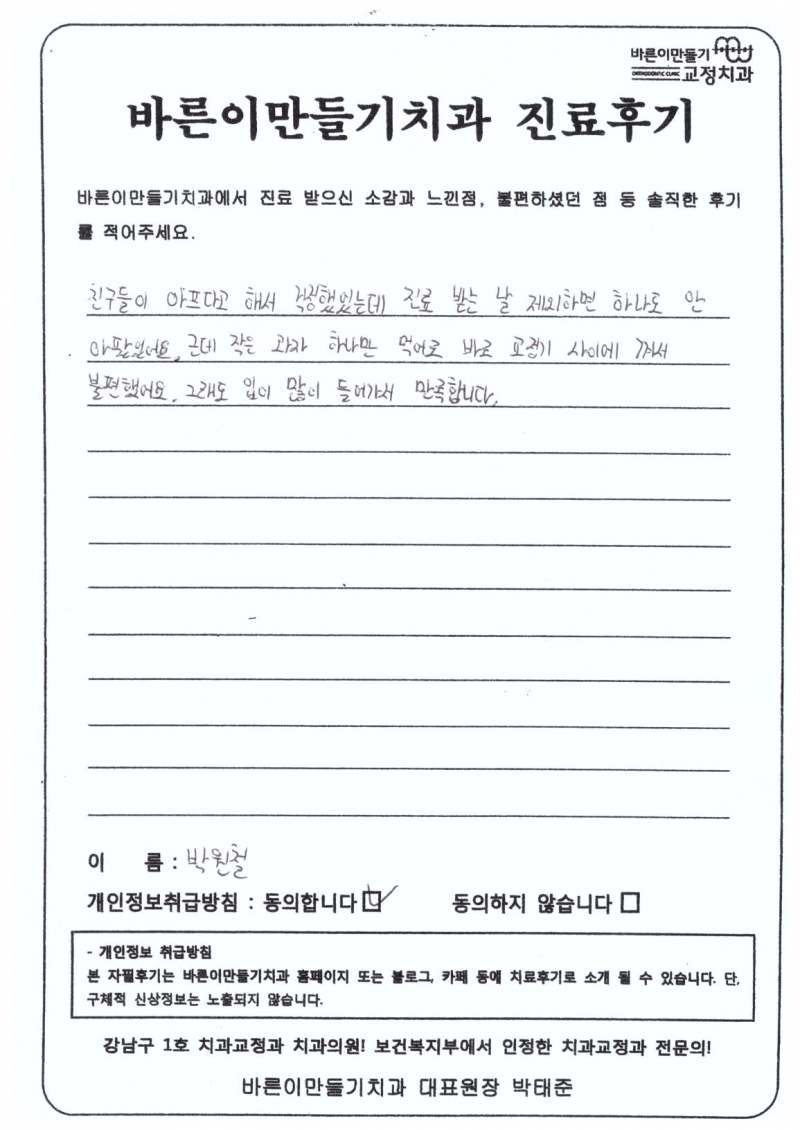 바른이만들기
ORTHODONTIC CLINIC 교정치과
바른이만들기치과 진료후기
바른이만들기치과에서 진료 받으신 소감과 느낀점, 불편하셨던 점 등 솔직한 후기
를 적어주세요.
친구들이 아프다고 해서 걱정했었는데 진료 받는 날 제외하면 하나도 안
아팠었어요. 근데 작은 과자 하나만 먹어도 바로 교정기 사이에 껴서
불편했어요. 그래도 입이 많이 들어가서 만족합니다.
이 름 : 박원철
개인정보취급방침 : 동의합니다 동의하지 않습니다
- 개인정보 취급방침
본 자필후기는 바른이만들기치과 홈페이지 또는 블로그, 카페 등에 치료후기로 소개 될 수 있습니다. 단,
구체적 신상정보는 노출되지 않습니다.
강남구 1호 치과교정과 치과의원! 보건복지부에서 인정한 치과교정과 전문의!
바른이만들기치과 대표원장 박태준